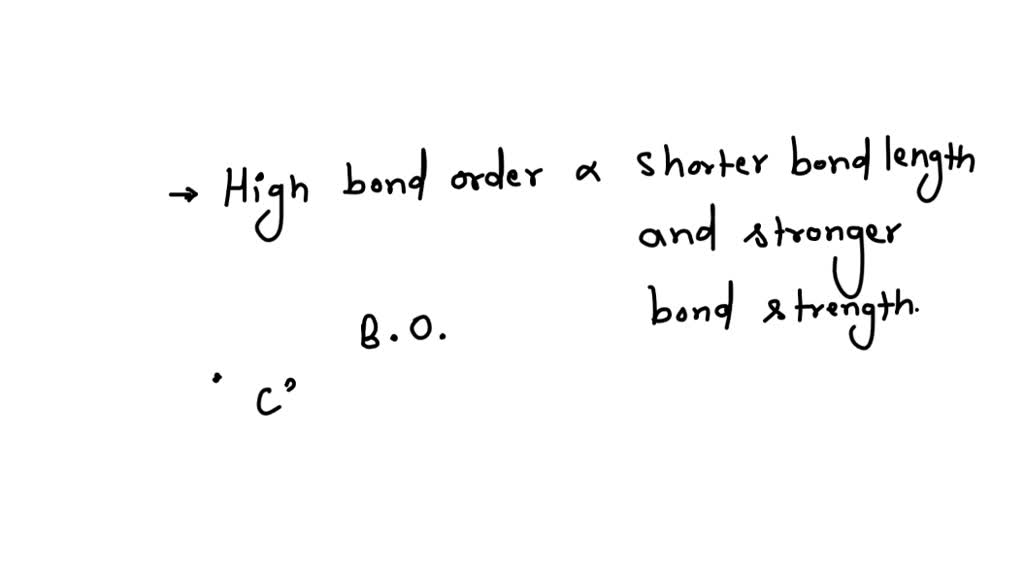 → High bond order ∝ shorter bond length
and stronger
bond strength.
B.O.
• C